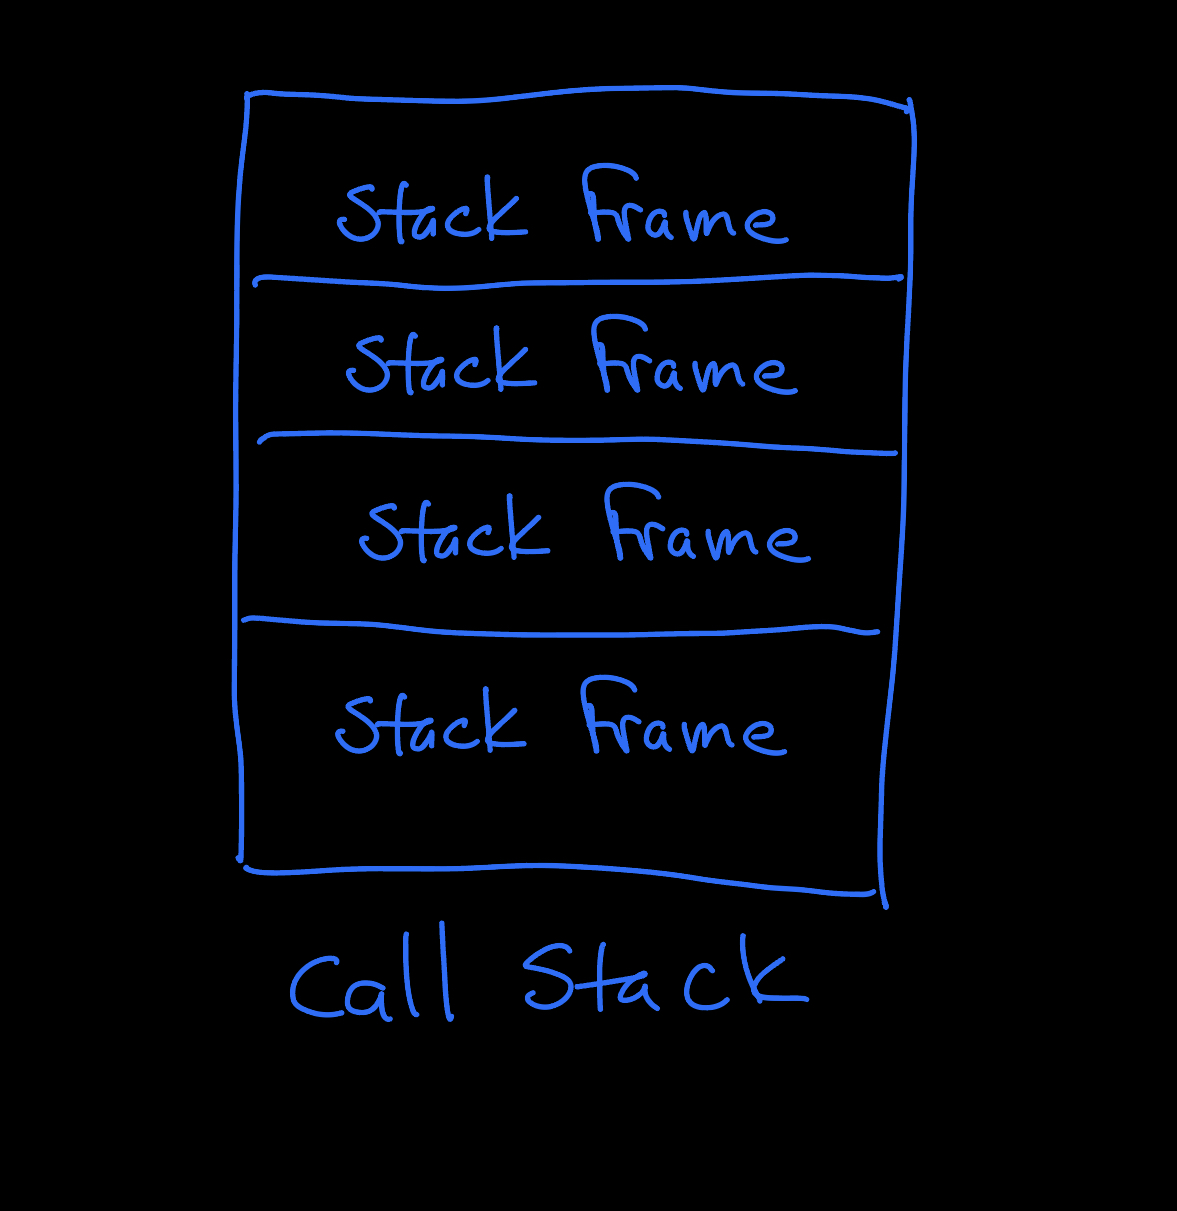 Stack Frame
Stack Frame
Stack Frame
Stack Frame
Call Stack